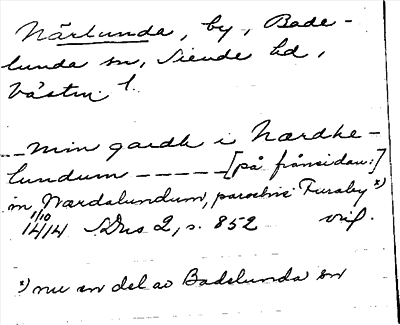 Närlunda, by, Bade-
lunda sn, Siende hd,
Västm. l.
--- min gardh i Nærdhe-
lundum ----- [på frånsidan:]
in Nærdalundum, parochie Furaby x)
1/10 1414 SDns 2, s. 852 orig.
x) nu en del av Badelunda sn